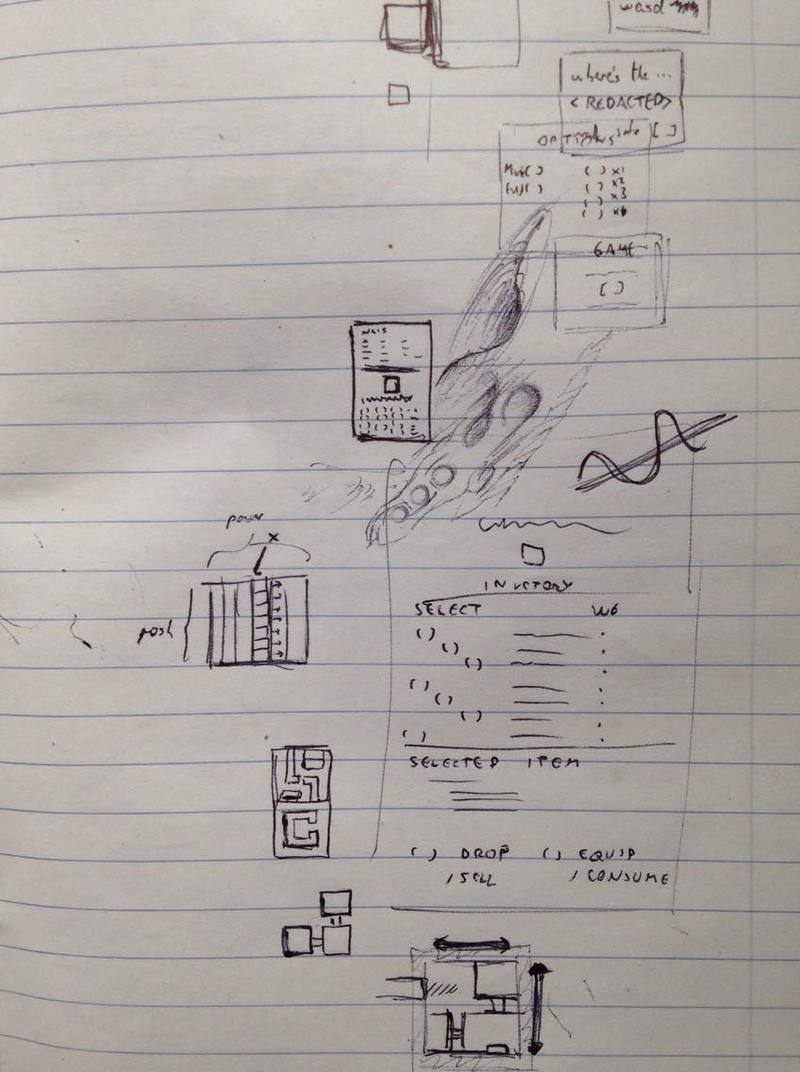 wasd
where's the ...
<REDACTED>
OPTIONS [ ]
Mus( ) ( ) x1
( ) x2
( ) x3
( )
GAME
[ ]
power
x
push
INVETORY
SELECT WG
( )
( )
( )
( )
( )
( )
( )
SELECTED ITEM
( ) DROP ( ) EQUIP
/ SELL / CONSUME